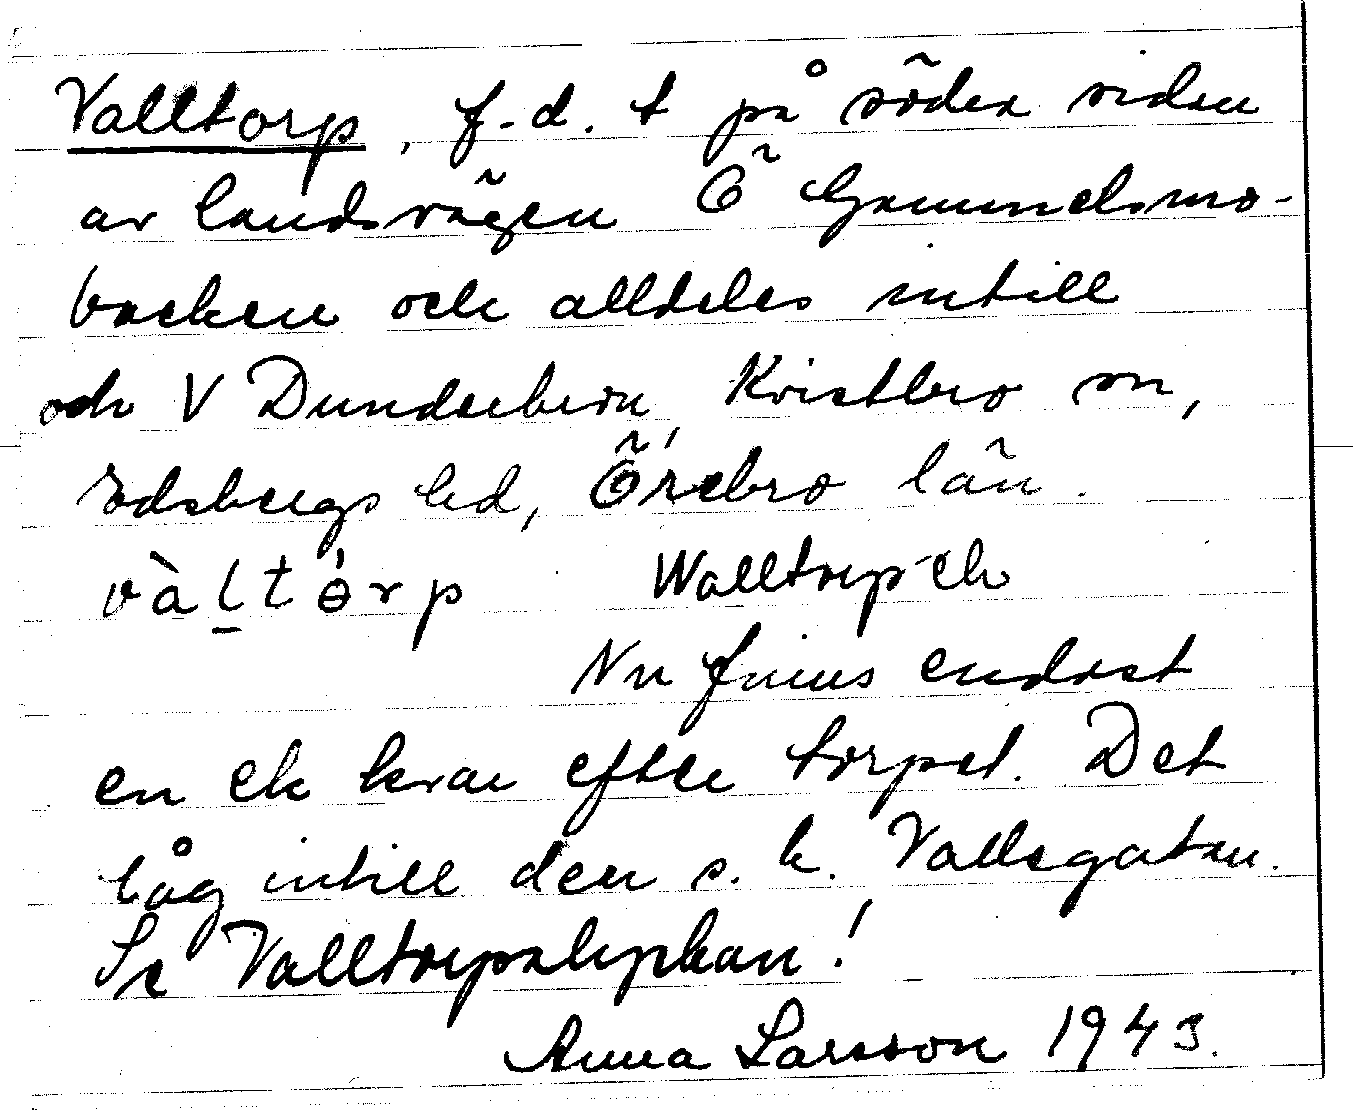 Valltorp, f.d. t på södra sidan
av landsvägen Ö Gammelsmo-
backen och alldeles intill
och V Dunderbern, Kvistbro sn,
Edsbergs hd, Örebro län.
vàltórp Walltorp ek
Nu finns endast
en ek kvar efter torpet. Det
låg intill den s.k. Vallsgatan.
Se Valltorpakyrkan!
Anna Larsson 1943.